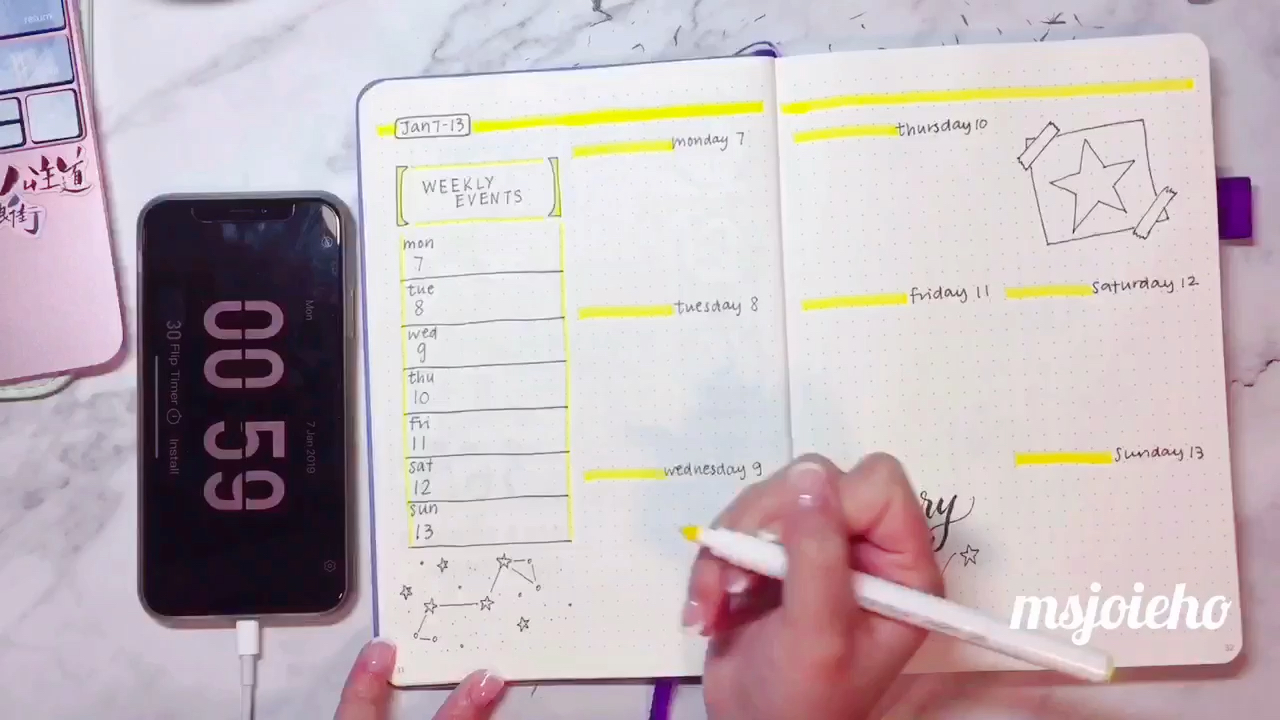 return
主道
街
00 59
Mon
7 Jan 2019
30 Flip Timer
Install
Jan 7-13
WEEKLY
EVENTS
mon
7
tue
8
wed
9
thu
10
fri
11
sat
12
sun
13
monday 7
tuesday 8
wednesday 9
thursday 10
friday 11
saturday 12
sunday 13
ry
msjoieho
31
32